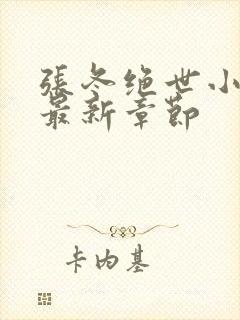 張冬绝世小
最新章節
卡内基